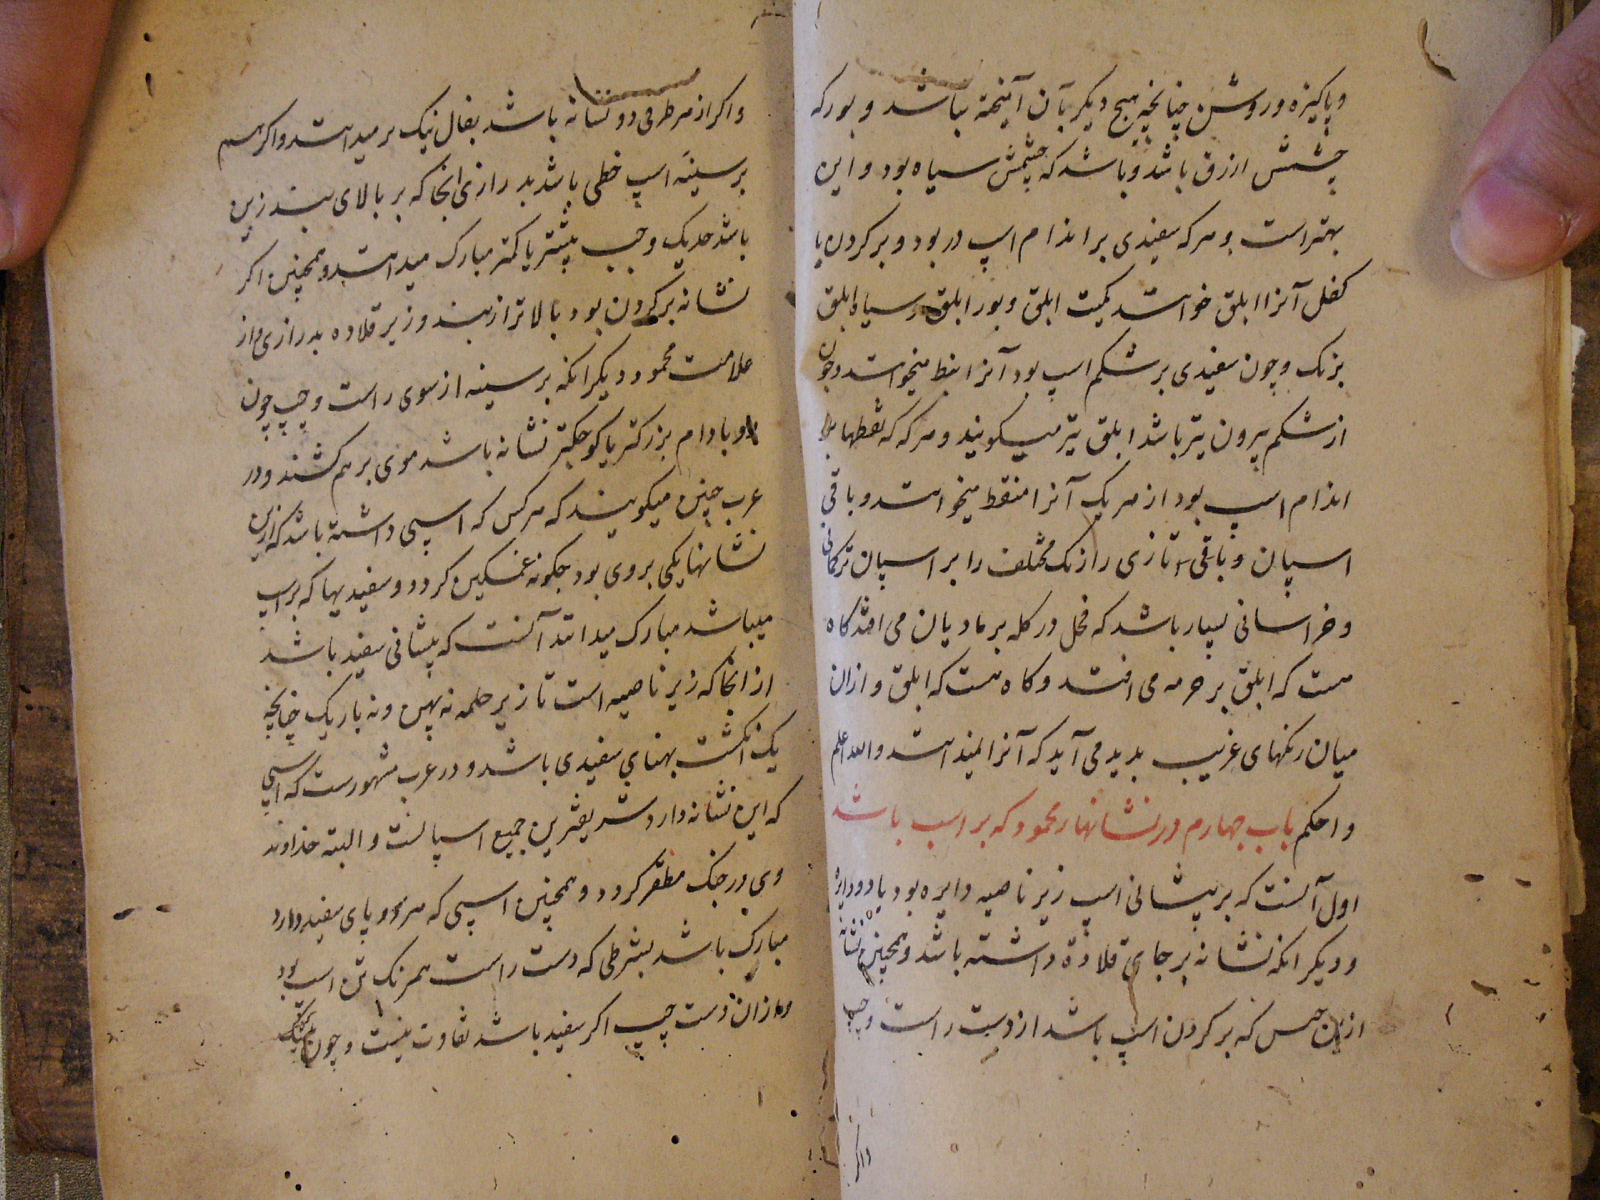 و پاکیزه و روشن چنانچه هیچ دیگر بآن آمیخته نباشد و بور که
چشمش ازرق باشد و باشد که چشمش سیاه بود و این
بهتر است و هر که سفیدی بر اندام اسپ در بود و بر کردن یا
کفل آنرا ابلق خوانند کمیت ابلق و بور ابلق و سیاه ابلق
بزنک و چون سفیدی بر شکم اسپ بود آنرا ابنط میخوانند و چون
از شکم بیرون تیر باشد ابلق تیر میکویند و هر که که نقطها بر
اندام اسپ بود از هر یک آنرا منقط میخوانند و باقی
اسپان و باقی تازی را زنک مختلف را بر اسپان ترکمانی
و خراسانی بسیار باشد که فحل در کله بر مادیان می افتد کاه
هست که ابلق بر خرمه می افتد و کاه هست که ابلق و ازان
میان رنکهای غریب بدید می آید که آنرا نمیدانند والله اعلم
و احکم باب چهارم در نشانهاء محمود که بر اسب باشد
اول آنست که بر پیشانی اسپ زیر ناصیه دایره بود یا دو دایره
و دیکر انکه نشانه بر جای قلاده داشته باشد و همچنین نشانه
ازین جنس که بر کردن اسپ باشد از دست راست و چپ
واکر
و اکر از هر طرفی دو نشانه باشد بفال نیک بر میدانند و اکر هم
بر سینه اسپ خطی باشد بدرازی انجا که بر بالای بند زین
باشد حد یک وجب بیشتر یا کمتر مبارک میدانند و همچنین اکر
نشانه بر کردن بود بالاتر از بند و زیر قلاده بدرازی و از
علامت محمود دیکر انکه بر سینه از سوی راست و چپ چون
دو بادام بزرکتر یا کوچکتر نشانه باشد موی بر هم کشند و در
عرب چنین میکویند که هر کس که اسپی داشته باشد که ازین
نشانها یکی بر وی بود چکونه غمکین کردد و سفیدیها که بر اسپ
میباشد مبارک میدانند آنست که پیشانی سفید باشد
از انجا که زیر ناصیه است تا زیر حلمه نه پهن و نه باریک چنانچه
یک انکشت بهنای سفیدی باشد و در عرب مشهورست که اسپی
که این نشانه دارد شریفترین جمیع اسپانست و البته خداوند
وی در جنک مظفر کردد و همچنین اسپی که هر دو پای سفید دارد
مبارک باشد بشرطی که دست راست همرنک تن اسب بود
و ازان دست چپ اکر سفید باشد تفاوت نیست و چون